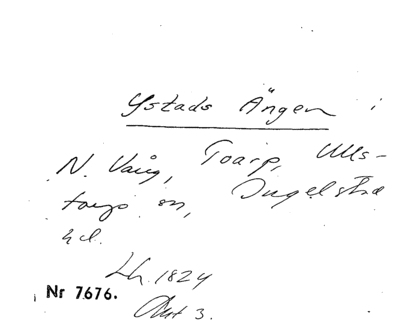 Ystads Ängen i
N. Vång, Toarp, Ulls-
torps sn, Ingelstad
hd.
Lh. 1824
Nr 7676.
Akt 3.